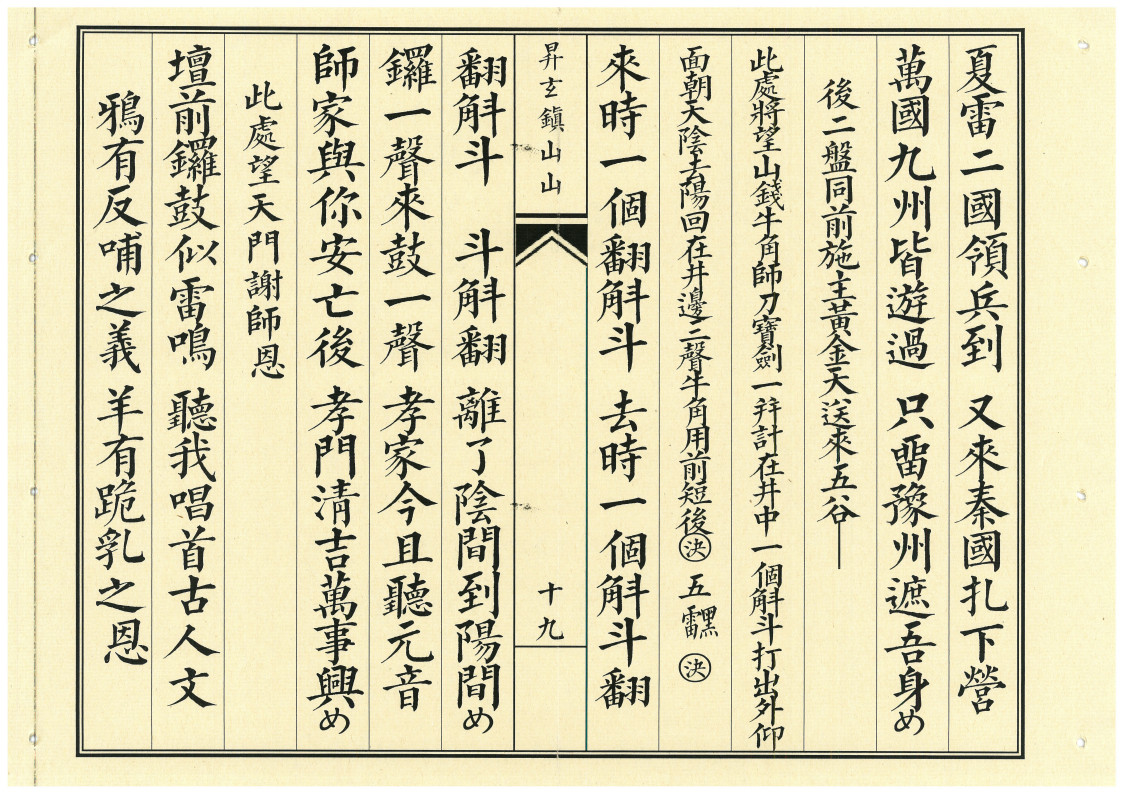 夏雷二國領兵到　又來秦國扎下營
萬國九州皆遊過　只留豫州遮吾身め
後二盤同前施主黃金天送來五谷——
此處將望山錢牛角師刀寶劍一并計在井中一個斛斗打出外仰
面朝天陰去陽回在井邊三聲牛角用前短後㊋五
來時一個翻斛斗　去時一個斛斗翻
昇玄鎮山山
十九
翻斛斗　斗斛翻　離了陰間到陽間め
鑼一聲來鼓一聲　孝家今且聽元音
師家與你安亡後　孝門清吉萬事興め
此處望天門謝師恩
壇前鑼鼓似雷鳴　聽我唱首古人文
鴉有反哺之義　羊有跪乳之恩